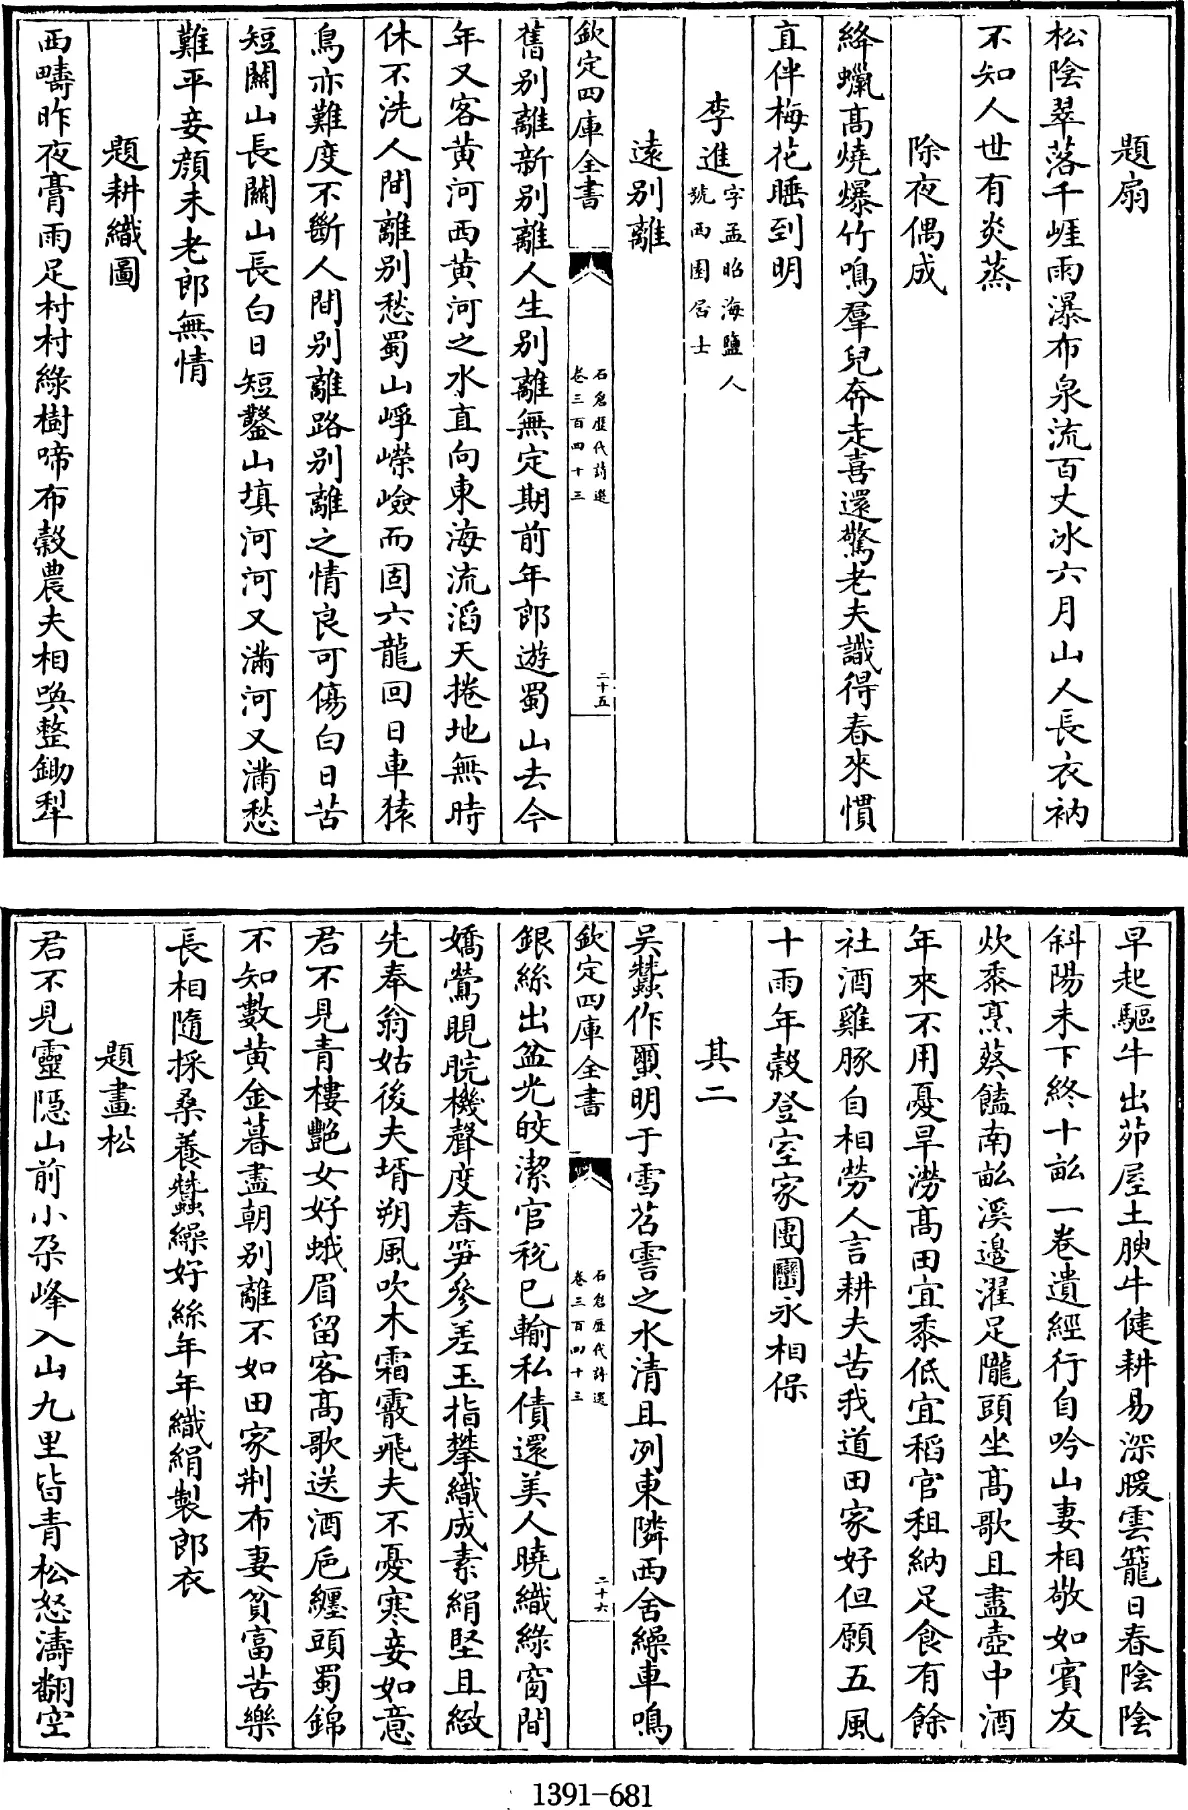 題扇
松陰翠落千崕雨瀑布泉流百丈冰六月山人長衣衲
不知人世有炎蒸
除夜偶成
絳蠟髙燒爆竹鳴羣兒奔走喜還驚老夫識得春來慣
直伴梅花睡到明
李進字孟昭海鹽人
號西園居士
遠别離
欽定四庫全書
石倉歷代詩選
卷三百四十三
二十五
舊别離新别離人生别離無定期前年郎遊蜀山去今
年又客黄河西黄河之水直向東海流滔天捲地無時
休不洗人間離别愁蜀山崢嶸嶮而固六龍回日車猿
鳥亦難度不斷人間别離路别離之情良可傷白日苦
短闗山長闗山長白日短鑿山填河河又滿河又滿愁
難平妾顔未老郎無情
題耕織圖
西疇昨夜膏雨足村村綠樹啼布穀農夫相喚整鋤犁
早起驅牛出茆屋土腴牛健耕易深暖雲籠日春陰陰
斜陽未下終十畝一卷遺經行自吟山妻相敬如賓友
炊黍烹葵饁南畝溪邉濯足隴頭坐髙歌且盡壺中酒
年來不用憂旱澇髙田宜黍低宜稻官租納足食有餘
社酒雞豚自相勞人言耕夫苦我道田家好但願五風
十雨年穀登室家團圞永相保
其二
吴蠶作繭明于雪苕霅之水清且冽東隣西舍繰車鳴
欽定四庫全書
石倉歷代詩選
卷三百四十三
二十六
銀絲出盆光皎潔官税已輸私債還美人曉織綠窗間
嬌鶯睍睆機聲度春笋參差玉指攀織成素絹堅且緻
先奉翁姑後夫壻朔風吹木霜霰飛夫不憂寒妾如意
君不見青樓艷女好蛾眉留客髙歌送酒巵纒頭蜀錦
不知數黄金暮盡朝别離不如田家荆布妻貧富苦樂
長相隨採桑養蠶繰好絲年年織絹製郎衣
題畫松
君不見靈隠山前小朶峰入山九里皆青松怒濤翻空
1391-681